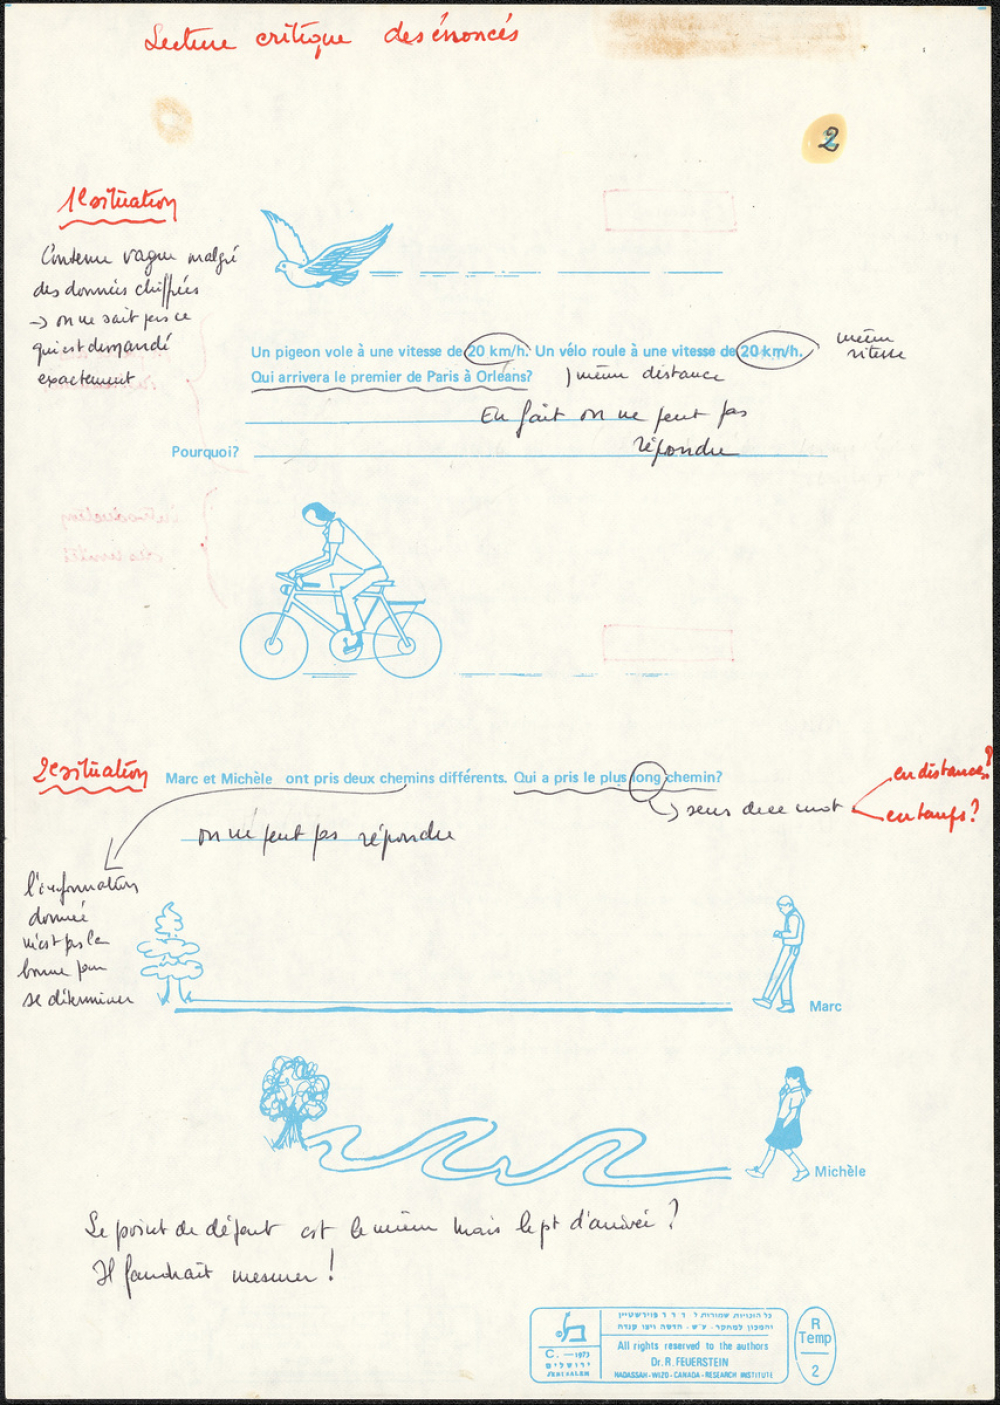 Lecture critique des énoncés
2
1e situation
Contenu vague malgré
des données chiffrées
→ on ne sait pas ce
qui est demandé
exactement
Un pigeon vole à une vitesse de 20 km/h. Un vélo roule à une vitesse de 20 km/h.
même
vitesse
Qui arrivera le premier de Paris à Orléans? ) même distance
En fait on ne peut pas
répondre
Pourquoi?
2e situation Marc et Michèle ont pris deux chemins différents. Qui a pris le plus long chemin?
→ sens de ce mot
en distance?
en temps?
on ne peut pas répondre
l'information
donnée
n'est pas la
bonne pour
se déterminer
Marc
Michèle
Le point de départ est le même mais le pt d'arrivée ?
Il faudrait mesurer !
C. — 1973
ירושלים
JERUSALEM
כל הזכויות שמורות ל
All rights reserved to the authors
Dr. R. FEUERSTEIN
HADASSAH - WIZO - CANADA - RESEARCH INSTITUTE
R
Temp
2